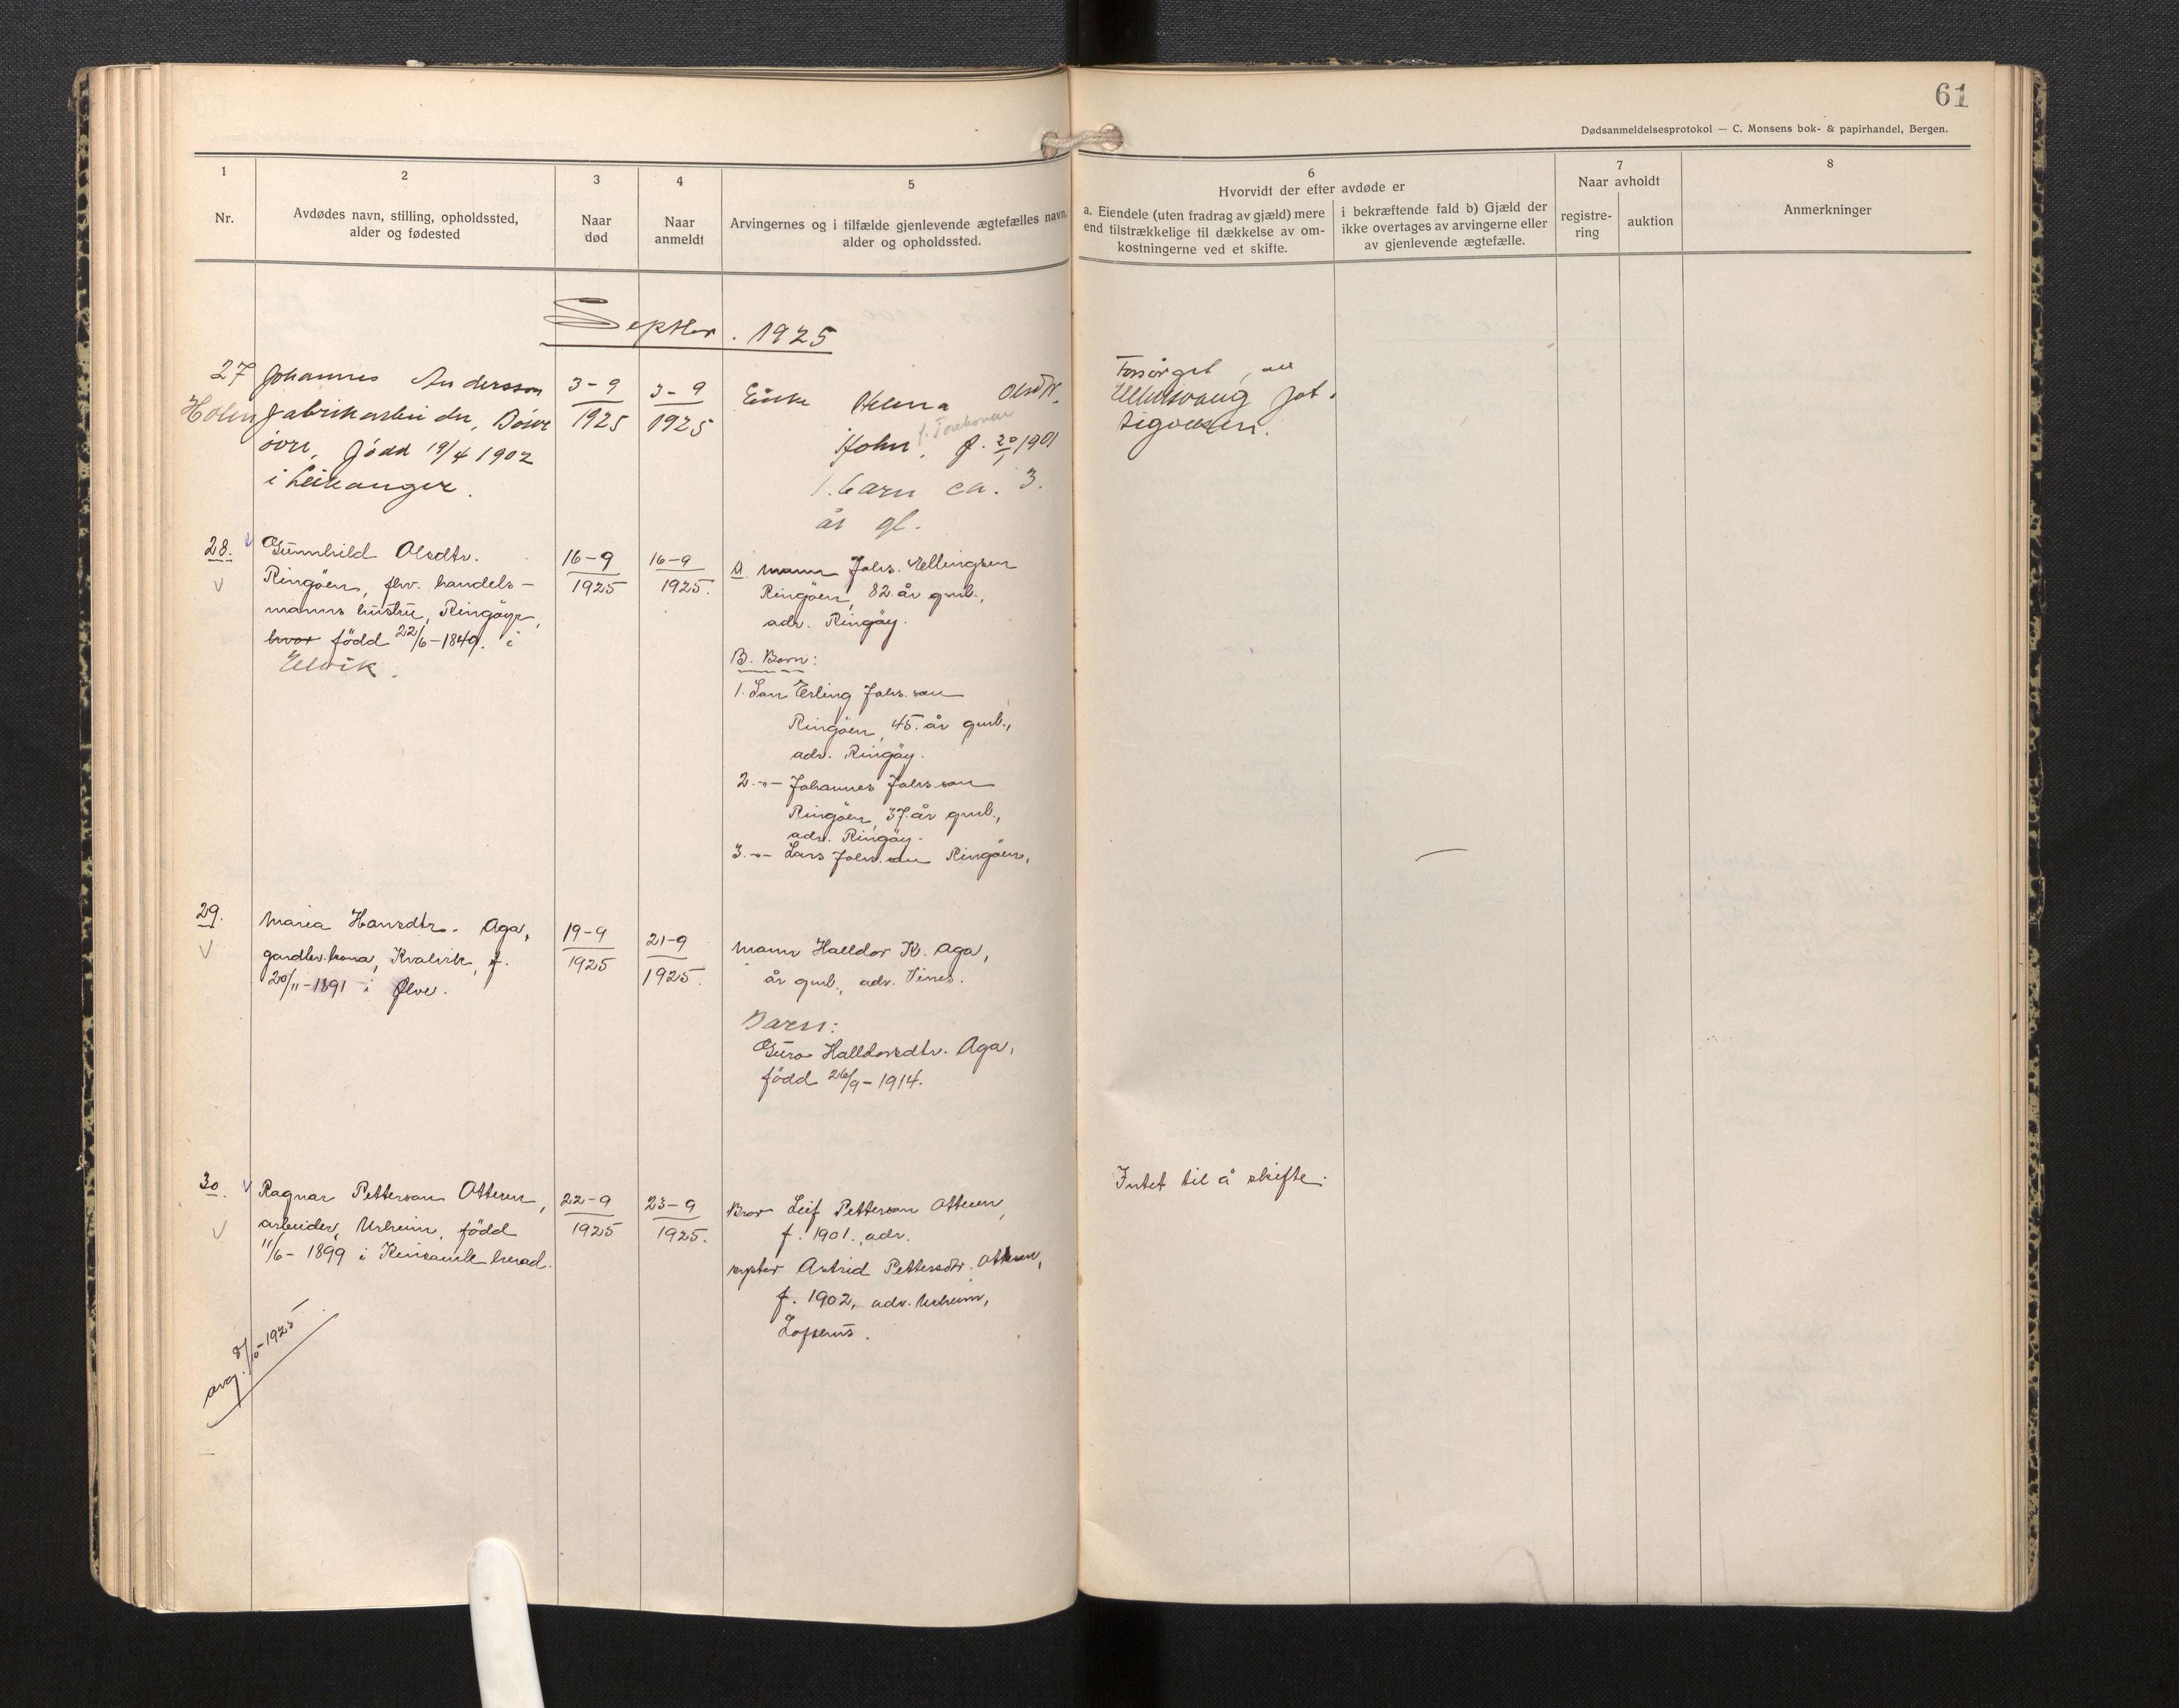 61
Dødsanmeldelsesprotokol — C. Monsens bok- & papirhandel, Bergen.
1
Nr.
2
Avdødes navn, stilling, opholdssted,
alder og fødested
3
Naar
død
4
Naar
anmeldt
5
Arvingernes og i tilfælde gjenlevende ægtefælles navn,
alder og opholdssted.
6
Hvorvidt der efter avdøde er
a. Eiendele (uten fradrag av gjæld) mere
end tilstrækkelige til dækkelse av om-
kostningerne ved et skifte.
i bekræftende fald b) Gjæld der
ikke overtages av arvingerne eller
av gjenlevende ægtefælle.
7
Naar avholdt
registre-
ring
auktion
8
Anmerkninger
Septbr. 1925
27 Johannes Andersson
Holm fabrikarbeider,
født 19/4 1902
i Leikanger.
3-9
1925
3-9
1925
Enke Helena Olsdtr.
Holm, f. 20/1 1901
1. barn ca. 3.
år gl.
Forsörget av
Ullensvang fat-
28.
Gunnhild Olsdtr.
Ringöen, fhv. handels-
manns hustru, Ringöy,
hvor född 22/6-1849. i
Ulvik.
16-9
1925
16-9
1925.
A. mann Johs. Ellingsen
Ringöen, 82 år gml.,
adr. Ringöy.
B. Born:
1. Son Erling Johs.son
Ringöen, 45. år gml.,
adr. Ringöy.
2. -"- Johannes Johsson
Ringöen, 37. år gml.,
adr. Ringöy.
3. -"- Lars Johs.son Ringöen,
29.
Maria Hansdtr. Aga,
gardbr.kona, Kvalvik, f.
20/11-1891 i Ølve.
19-9
1925
21-9
1925.
Mann Halldor K. Aga,
år gml., adr. Vines.
Barn:
Guro Halldorsdtr. Aga,
född 26/9-1914.
30.
Ragnar Petterson Otteren,
arbeider, Urheim, född
11/6-1899 i Kinsarvik herad.
22-9
1925
23-9
1925.
Bror Leif Petterson Otteren,
f. 1901., adr.
syster Astrid Pettersdtr. Otteren,
f. 1902, adr. Urheim,
Lofthus.
Intet til å skifte.
avg. 8/10-1925